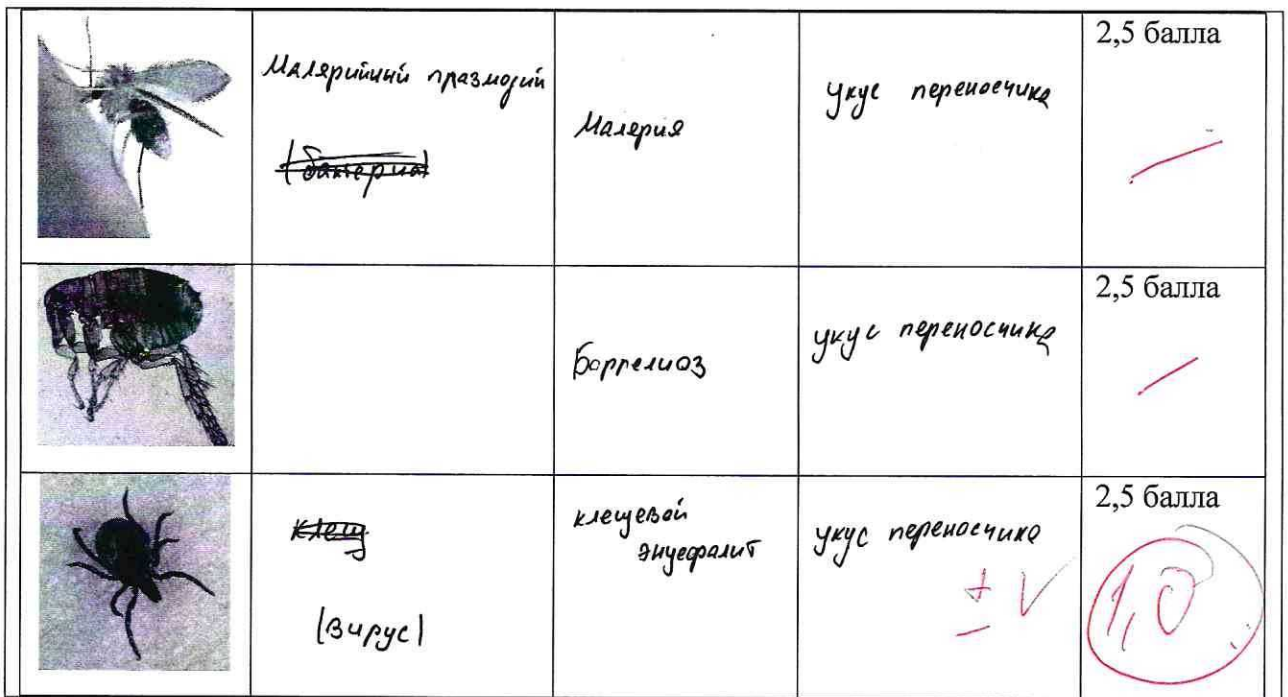 2,5 балла
Малярийний празмодий
(бактериа)
Малерия
укус переносчика
2,5 балла
Боррелиоз
укус переносчика
2,5 балла
клещ
(вирус)
клещевой
энцефалит
укус переносчика
± V
1,0